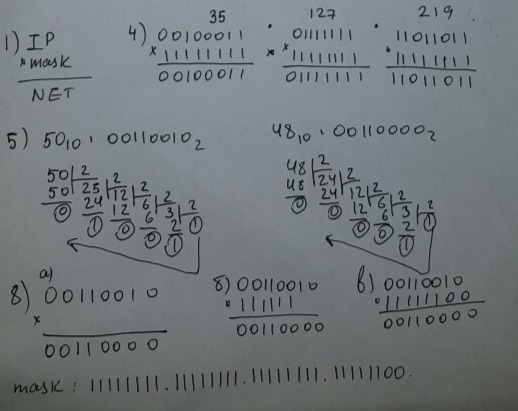 35 . 127 . 219
1) IP
* mask
NET
4) 00100011 01111111 11011011
* 11111111 * 11111111 . 11111111
00100011 01111111 11011011
5) 50₁₀ . 00110010₂ 48₁₀ . 00110000₂
50 2 48 2
50 25 2 48 24 2
0 24 12 2 0 24 12 2
1 12 6 2 0 12 6 2
0 6 3 2 0 6 3 2
0 2 1 0 2 1
1 1
8) а) 00110010 б) 00110010 в) 00110010
* . 111111 . 11111100
00110000 00110000 00110000
mask : 11111111.11111111.11111111.11111100.